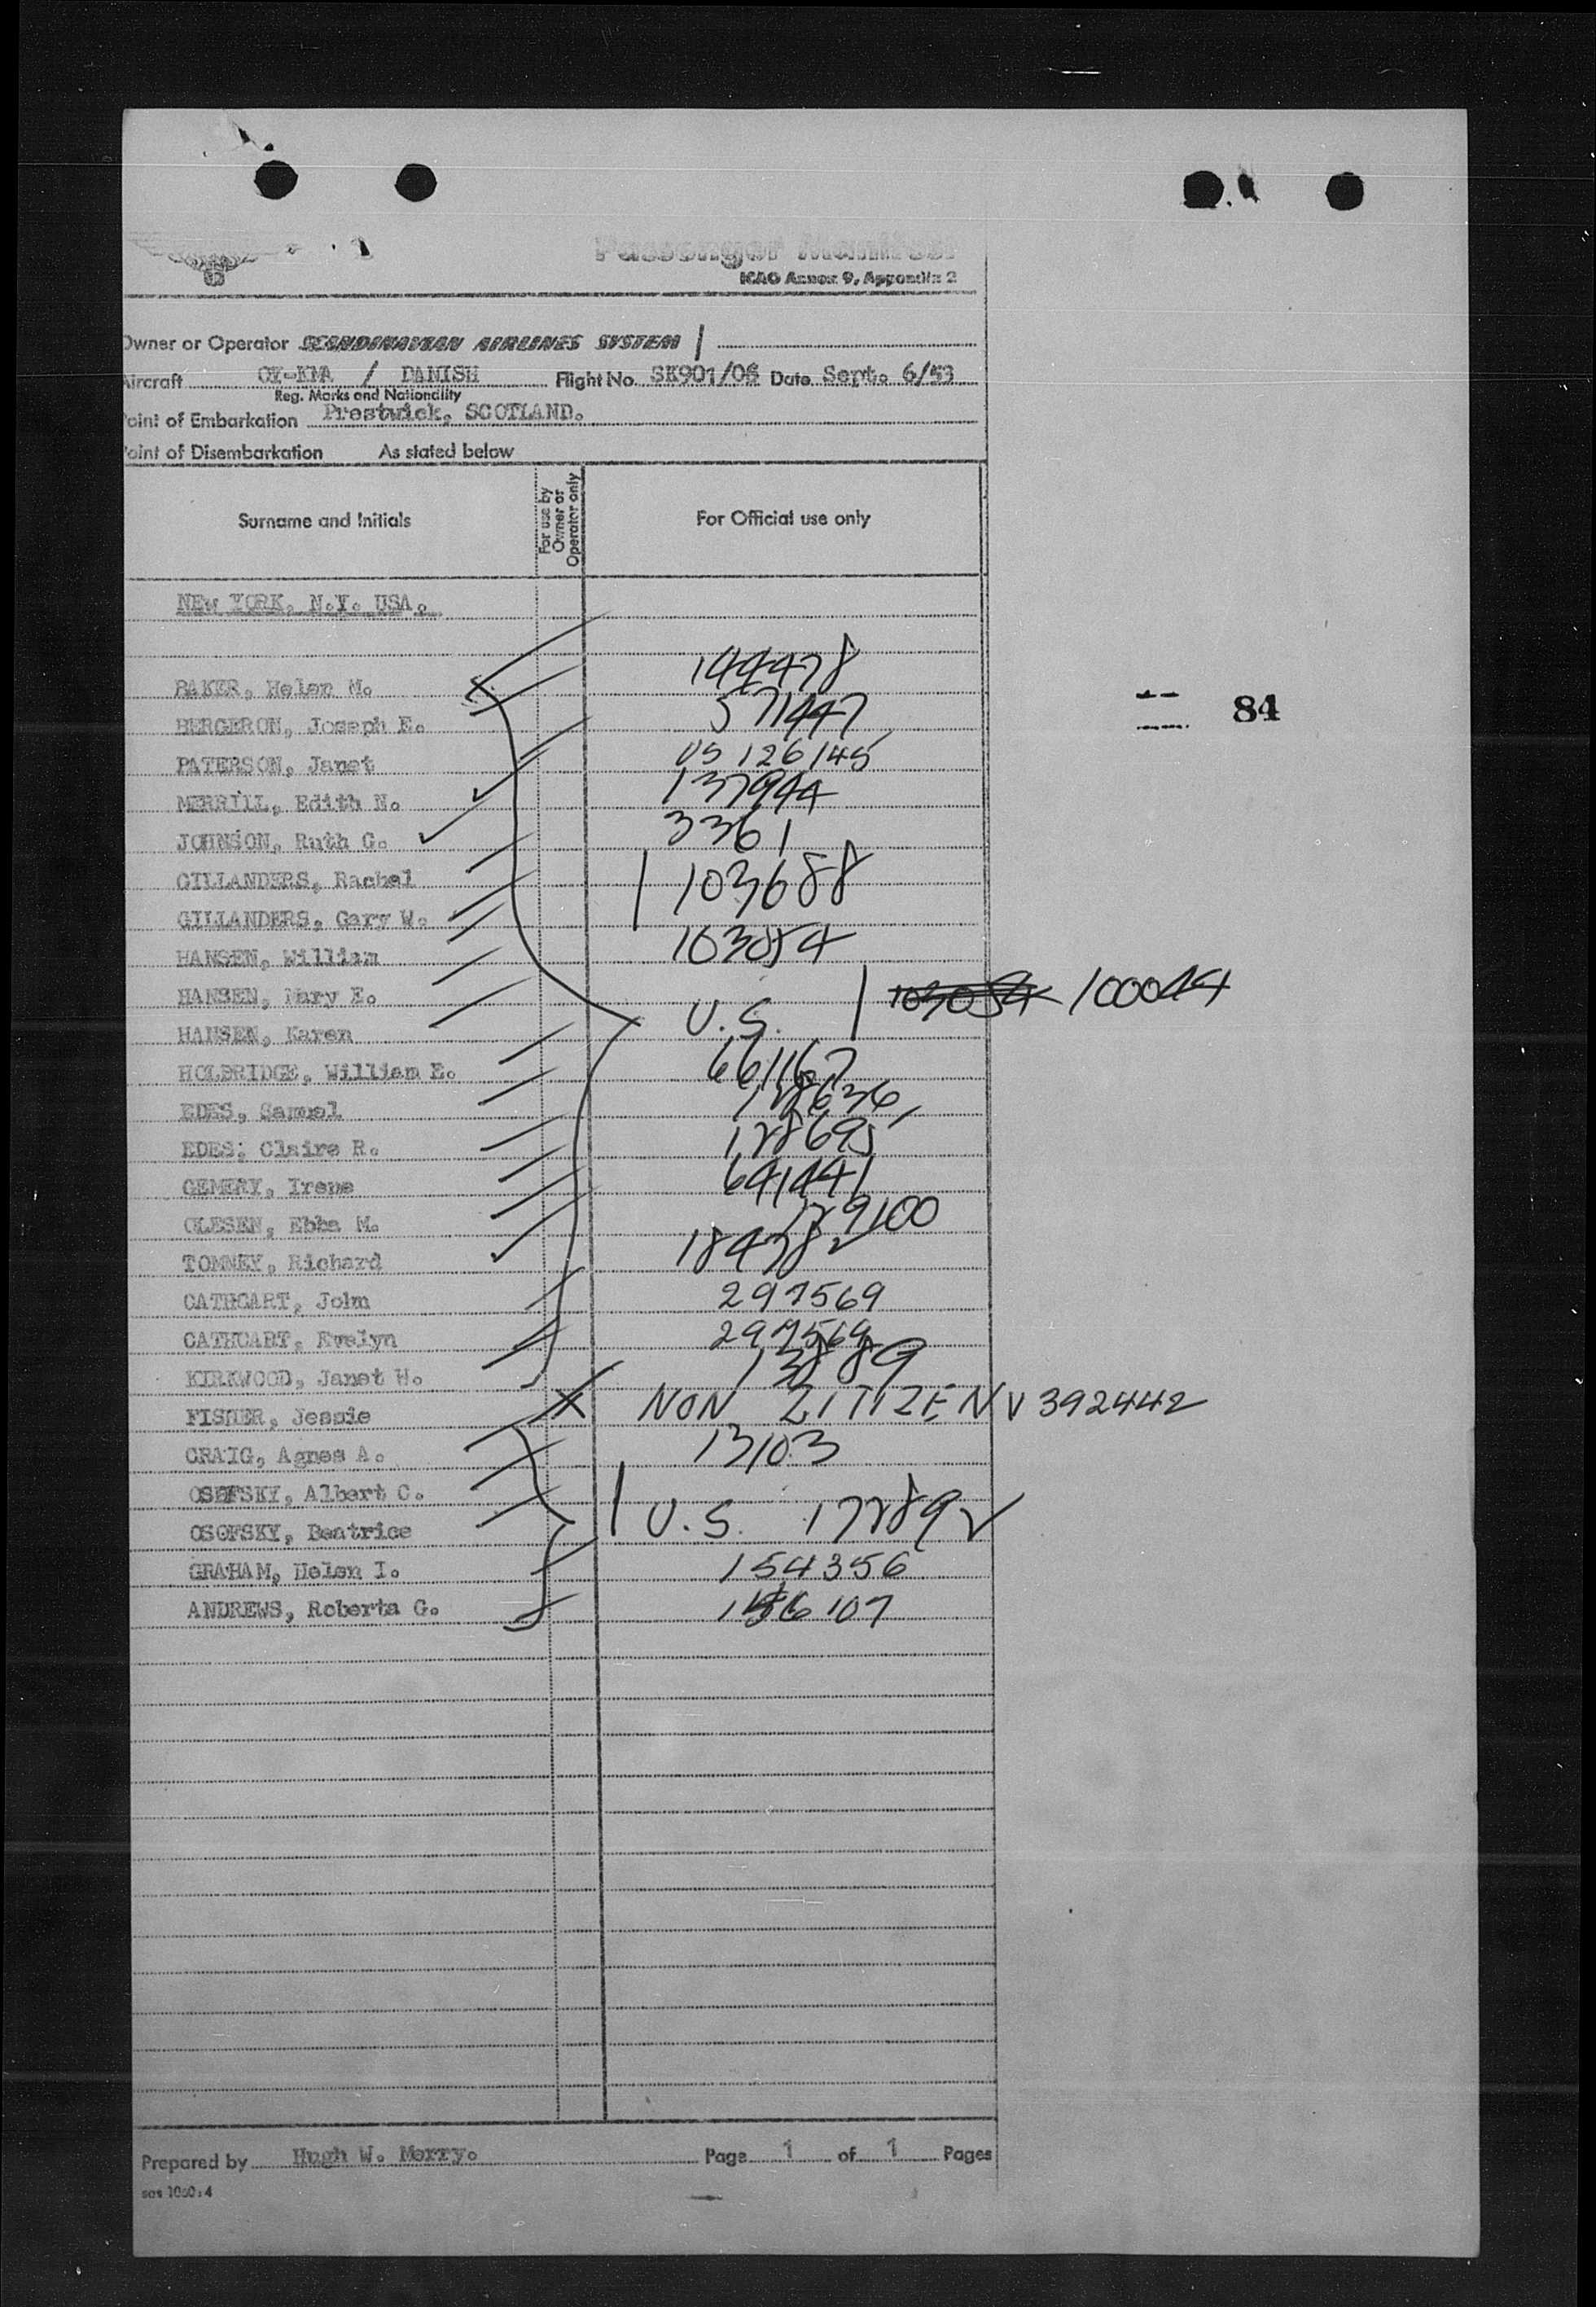 Passenger Manifest
ICAO Annex 9, Appendix 2
Owner or Operator SCANDINAVIAN AIRLINES SYSTEM
Aircraft / DANISH Flight No. SK901/05 Date Sept. 6/53
Reg. Marks and Nationality
Point of Embarkation Prestwick, SCOTLAND.
Point of Disembarkation As stated below
Surname and Initials
For use by Owner or Operator only
For Official use only
NEW YORK, N.Y. USA.
BAKER, Helen M. 144478
84
BERGERON, Joseph E. 571447
PATERSON, Janet US 126145
MERRILL, Edith N. 137944
JOHNSON, Ruth G. 3361
GILLANDERS, Rachel 103688
GILLANDERS, Gary W.
HANSEN, William 103054
HANSEN, Mary E. 103054 100044
HANSEN, Karen U.S.
HOLBRIDGE, William E. 661167
EDES, Samuel 128636
EDES, Claire R. 128695
GEMERY, Irene 641441
OLESEN, Ebba M. 129100
TOMNEY, Richard 184782
CATHCART, John 297569
CATHCART, Evelyn 297569
KIRKWOOD, Janet H. 13889
FISHER, Jessie X NON CITIZEN V 392442
CRAIG, Agnes A. 13103
OSOFSKY, Albert C.
OSOFSKY, Beatrice U.S. 172892
GRAHAM, Helen I. 154356
ANDREWS, Roberta G. 156107
Prepared by Hugh W. Merry. Page 1 of 1 Pages